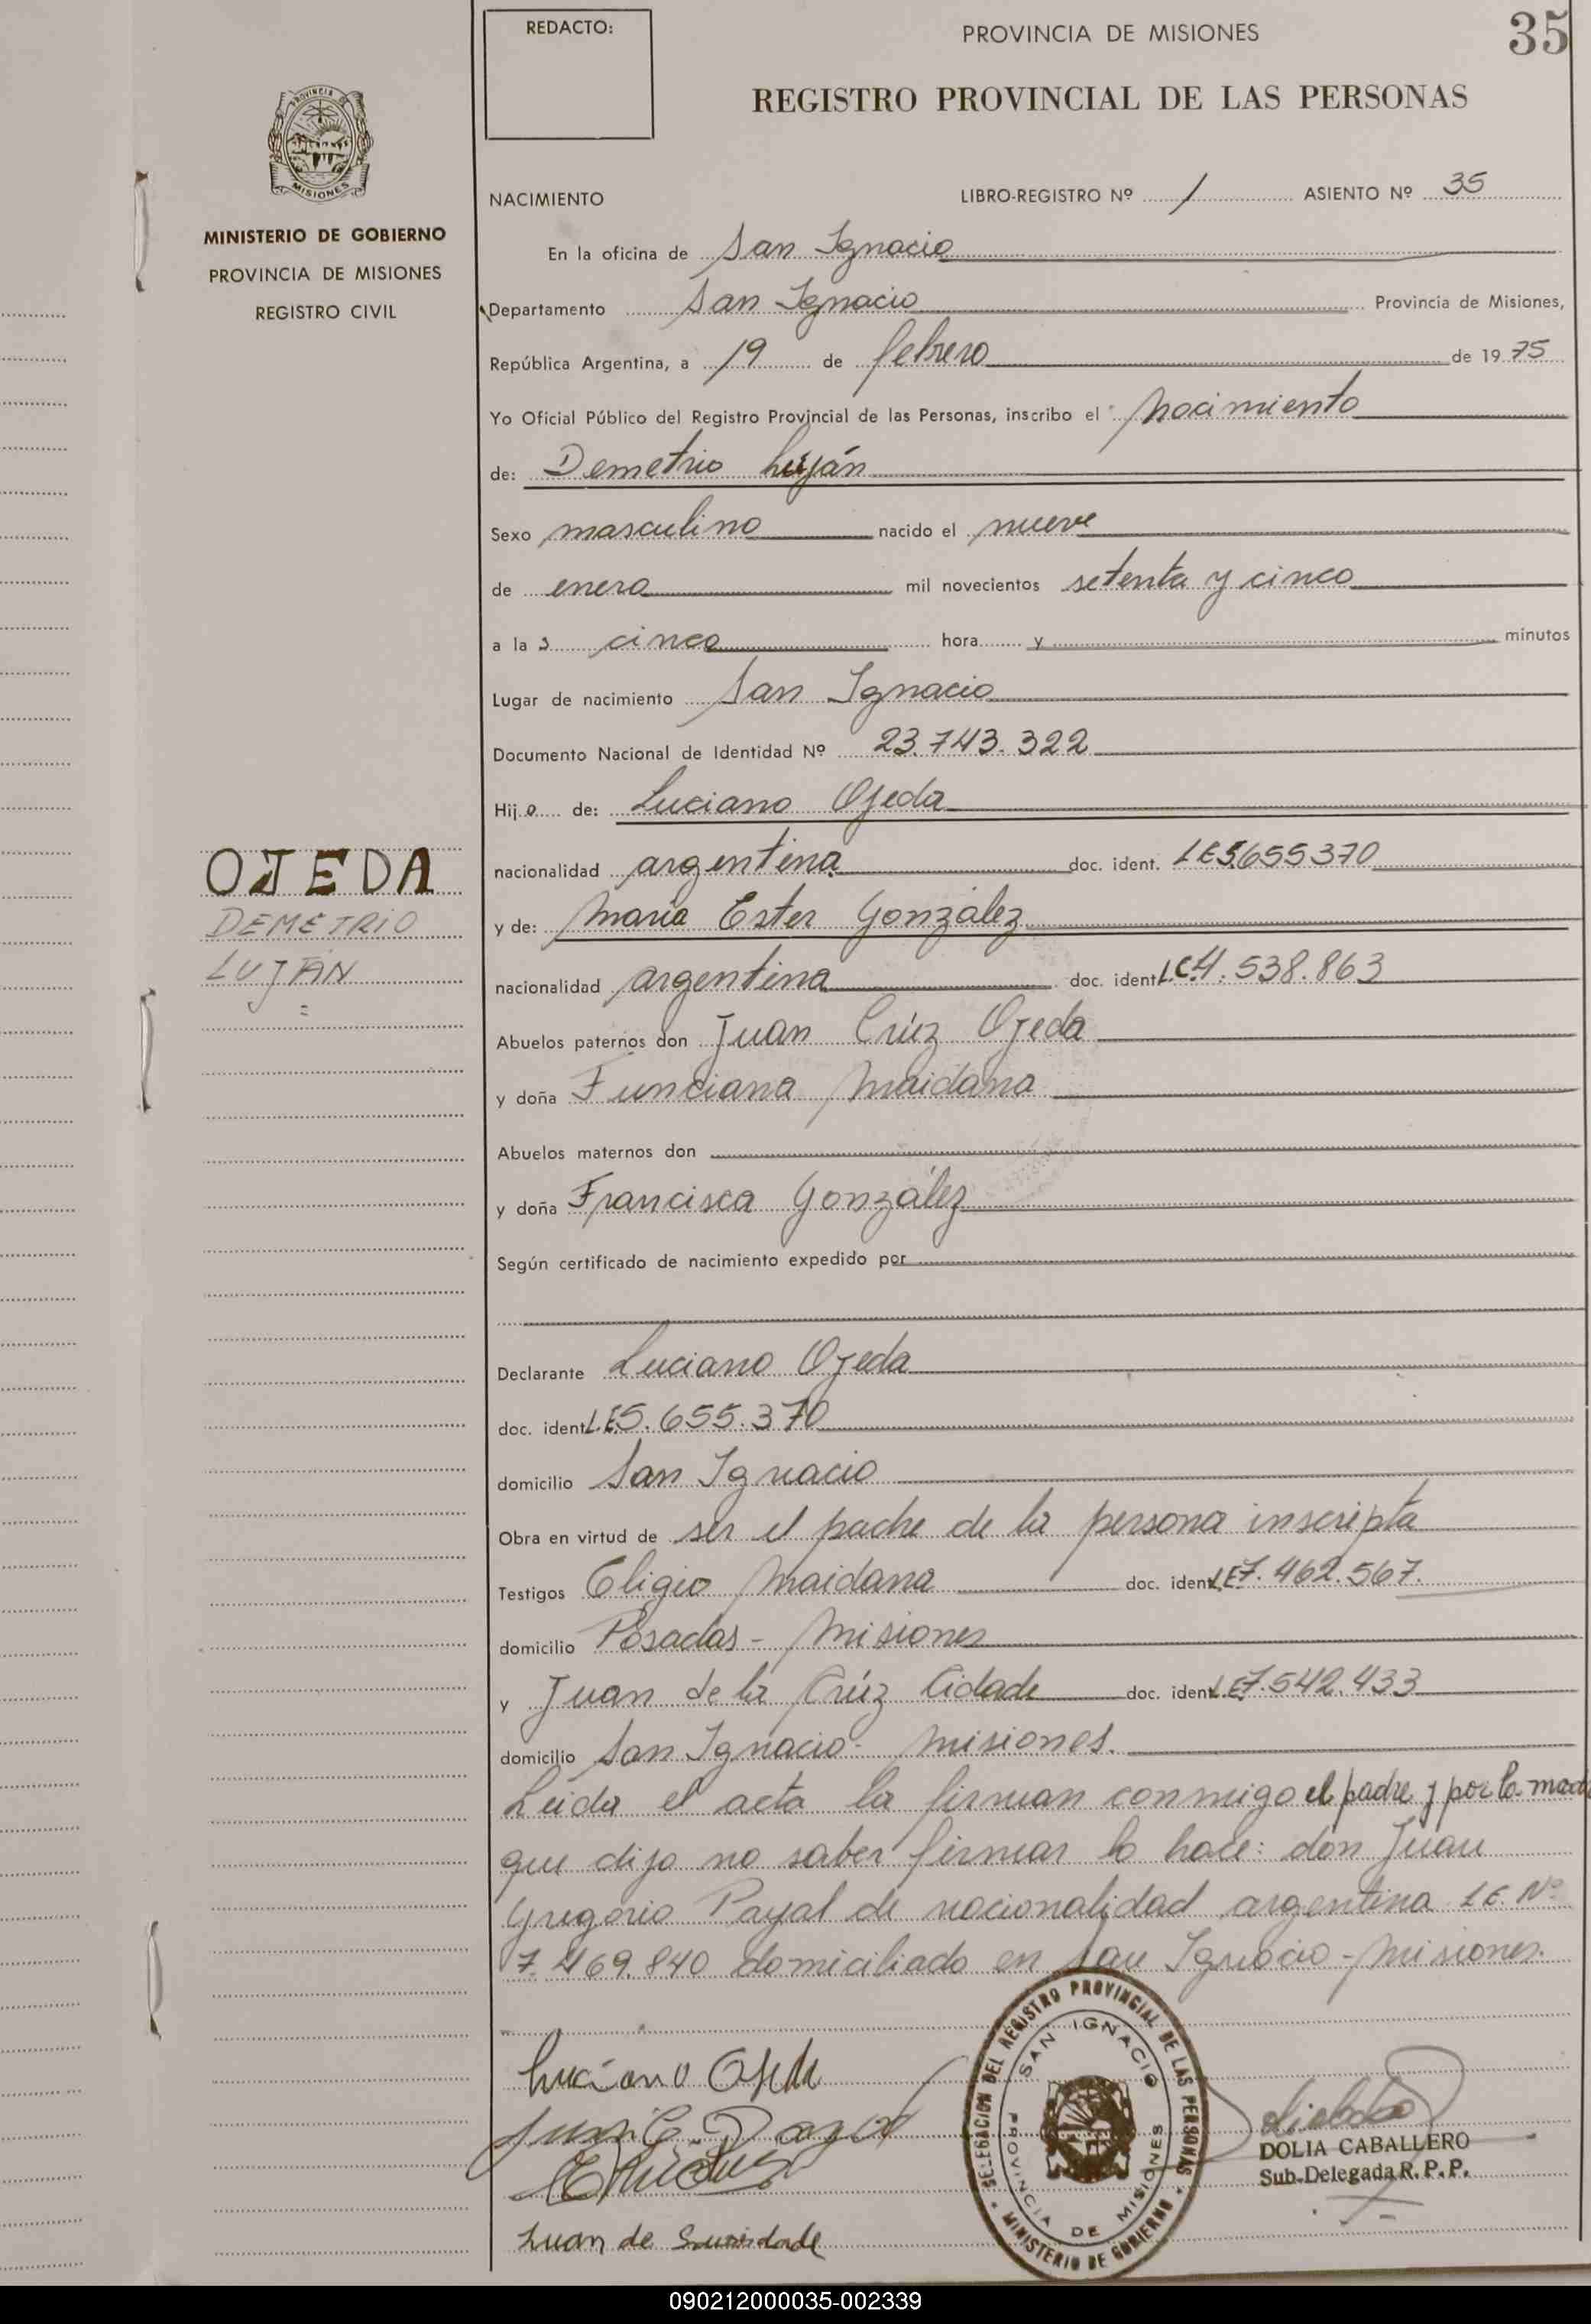 REDACTO:
PROVINCIA DE MISIONES
35
REGISTRO PROVINCIAL DE LAS PERSONAS
PROVINCIA DE
MISIONES
MINISTERIO DE GOBIERNO
PROVINCIA DE MISIONES
REGISTRO CIVIL
NACIMIENTO LIBRO-REGISTRO Nº 1 ASIENTO Nº 35
En la oficina de San Ignacio
Departamento San Ignacio Provincia de Misiones,
República Argentina, a 19 de febrero de 1975
Yo Oficial Público del Registro Provincial de las Personas, inscribo el nacimiento
de: Demetrio Luján
Sexo masculino nacido el nueve
de enero mil novecientos setenta y cinco
a la s cinco hora y minutos
Lugar de nacimiento San Ignacio
Documento Nacional de Identidad Nº 23.743.322
Hijo de: Luciano Ojeda
OJEDA
DEMETRIO
LUJÁN
nacionalidad argentina doc. ident. LE5.655370
y de: María Ester González
nacionalidad argentina doc. ident L.C.4.538.863
Abuelos paternos don Juan Crúz Ojeda
y doña Funciana Maidana
Abuelos maternos don
y doña Francisca González
Según certificado de nacimiento expedido por
Declarante Luciano Ojeda
doc. ident L.E.5.655.370
domicilio San Ignacio
Obra en virtud de ser el padre de la persona inscripta
Testigos Eligio Maidana doc. ident L.E7.462.567.
domicilio Posadas - Misiones
y Juan de la Crúz Cidade doc. ident L.E7.542.433
domicilio San Ignacio - Misiones.
Leida el acta la firman conmigo el padre y por la madre
que dijo no saber firmar lo hace: don Juan
Gregorio Payal de nacionalidad argentina L.E. Nº
7.469.840 domiciliado en San Ignacio - Misiones.
Luciano Ojeda
Juan de
DELEGACION DEL REGISTRO PROVINCIAL DE LAS PERSONAS
MINISTERIO DE GOBIERNO
SAN IGNACIO
PROVINCIA DE MISIONES
DOLIA CABALLERO
Sub-Delegada R. P. P.
090212000035-002339